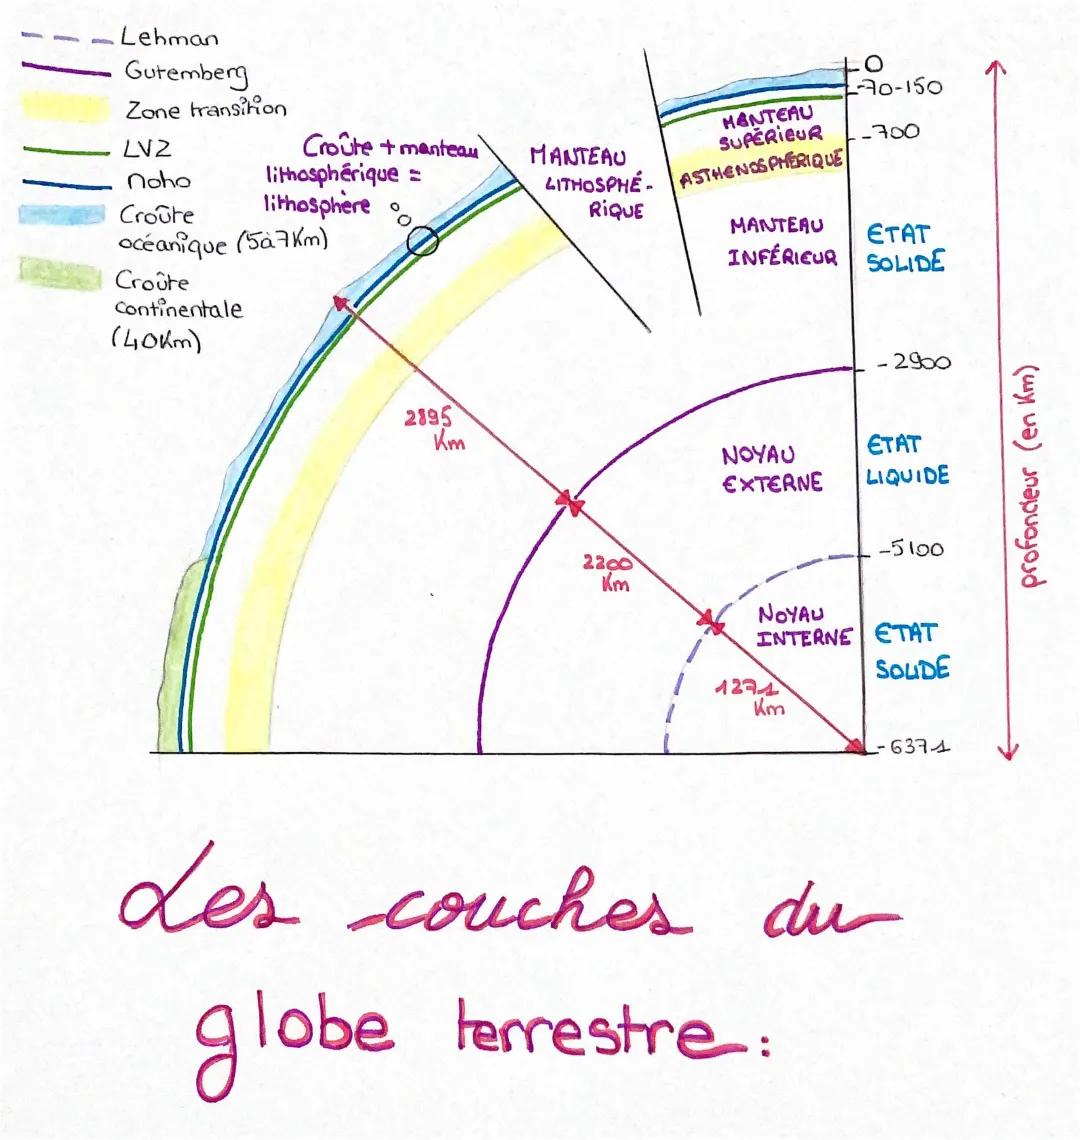 Lehman
Gutemberg
Zone transition
LVZ
Moho
Croûte
océanique (5à7Km)
Croûte
continentale
(40Km)
Croûte + manteau
lithosphérique =
lithosphère
MANTEAU
LITHOSPHÉ-
RIQUE
MANTEAU
SUPÉRIEUR
ASTHENOSPHÉRIQUE
MANTEAU
INFÉRIEUR
0
-70-150
-700
ETAT
SOLIDE
-2900
2895
Km
NOYAU
EXTERNE
ETAT
LIQUIDE
profondeur (en Km)
-5100
2200
Km
NOYAU
INTERNE
ETAT
SOLIDE
1271
Km
-6371
Les couches du
globe terrestre: